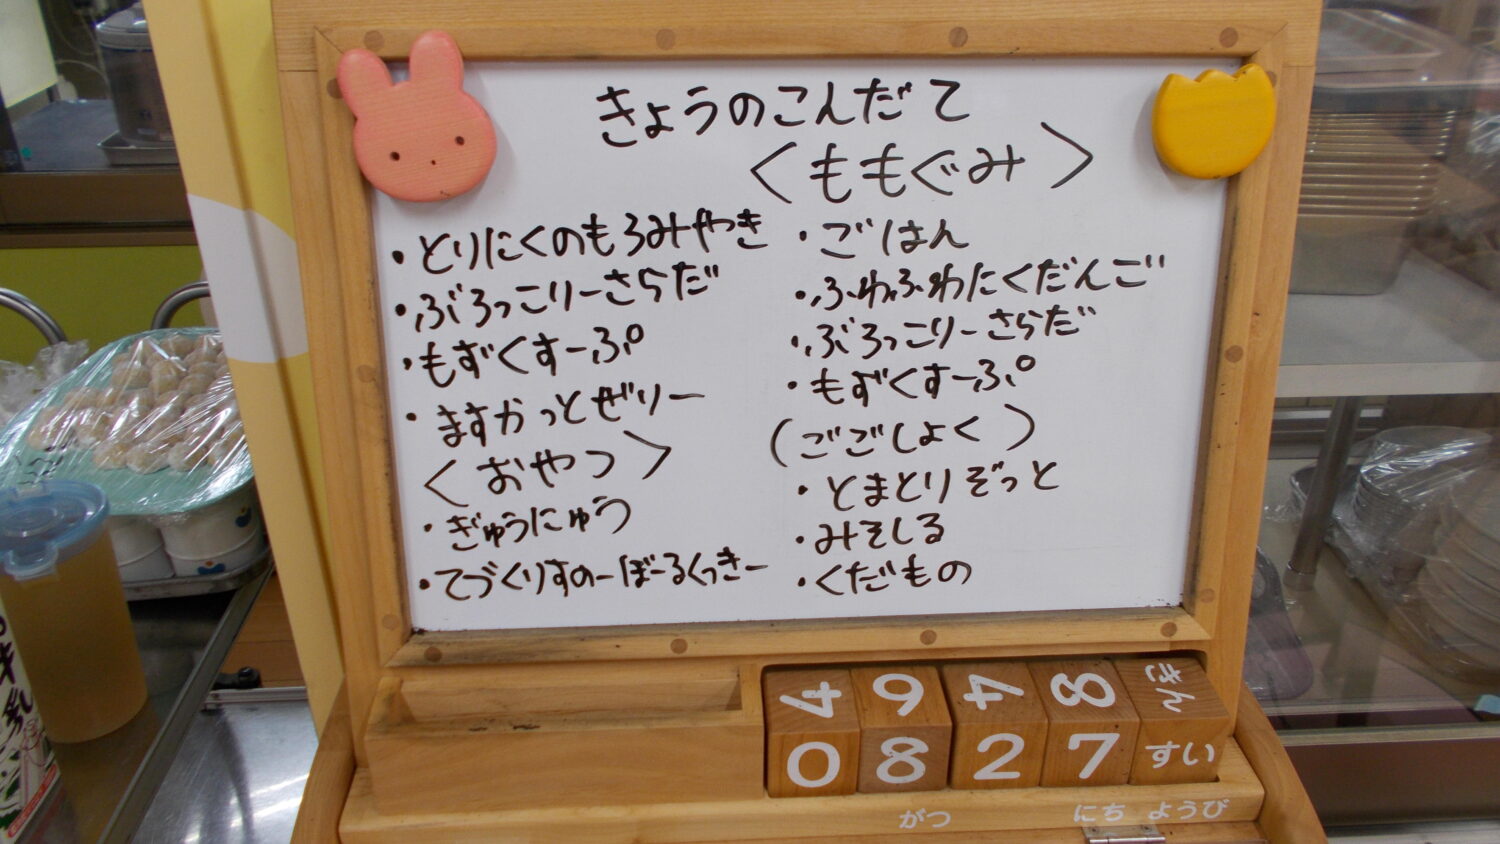 きょうのこんだて
・とりにくのもろみやき
・ぶろっこりーさらだ
・もずくすーぷ
・ますかっとぜりー
<おやつ>
・ぎゅうにゅう
・てづくりすのーぼーるくっきー
<ももぐみ>
・ごはん
・ふわふわたくだんご
・ぶろっこりーさらだ
・もずくすーぷ
(ごごしょく)
・とまとりぞっと
・みそしる
・くだもの
4 6 4 8 きん
0 8 2 7 すい
がつ にち ようび
牛乳